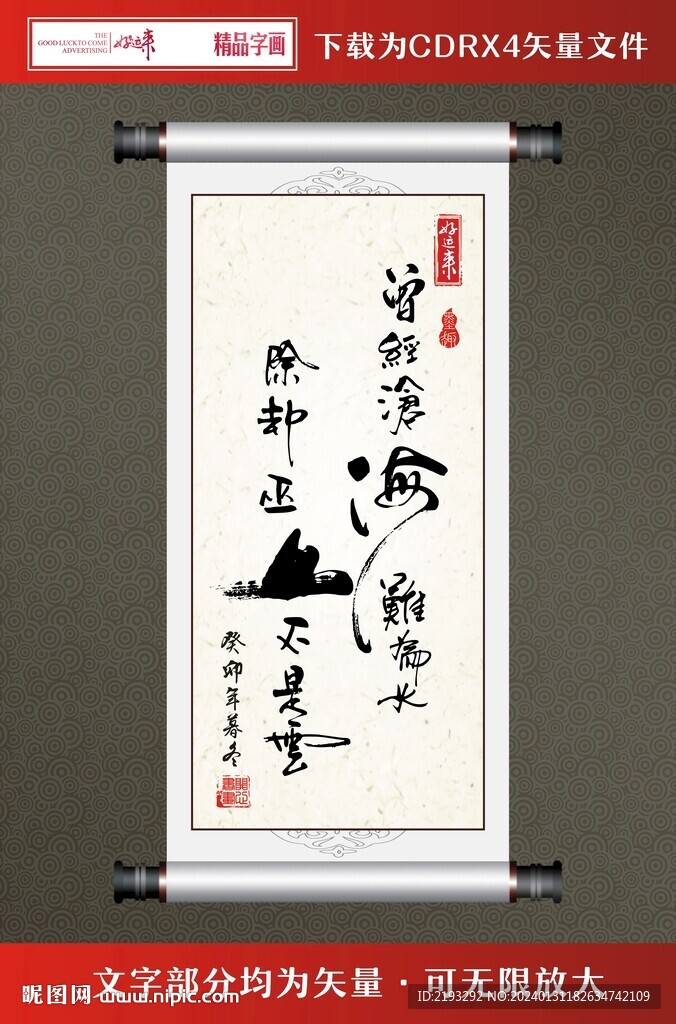 THE
GOOD LUCKTO COME
ADVERTISING
好运来
精品字画
下载为CDRX4矢量文件
好运来
墨趣
曾經滄海難為水
除却巫山不是雲
癸卯年暮冬
文字部分均为矢量·可无限放大
昵图网 www.nipic.com
ID:2193292 NO:20240131182634742109